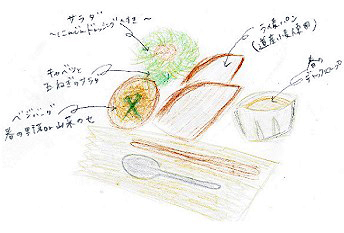 サラダ
〜にんじんドレッシング
キャベツと
玉ねぎのフライ
ベジバーグ
春の野菜or山菜の
ライ麦パン
(道産小麦使用)
春の